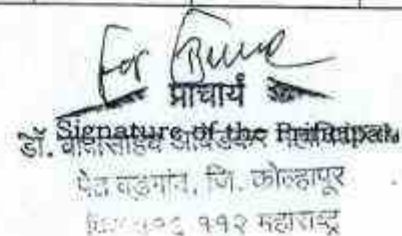 For
प्राचार्य
Signature of the Principal
डॉ. बाबासाहेब आंबेडकर महाविद्यालय
पेठ वडगांव, जि. कोल्हापूर
११२ महाराष्ट्र